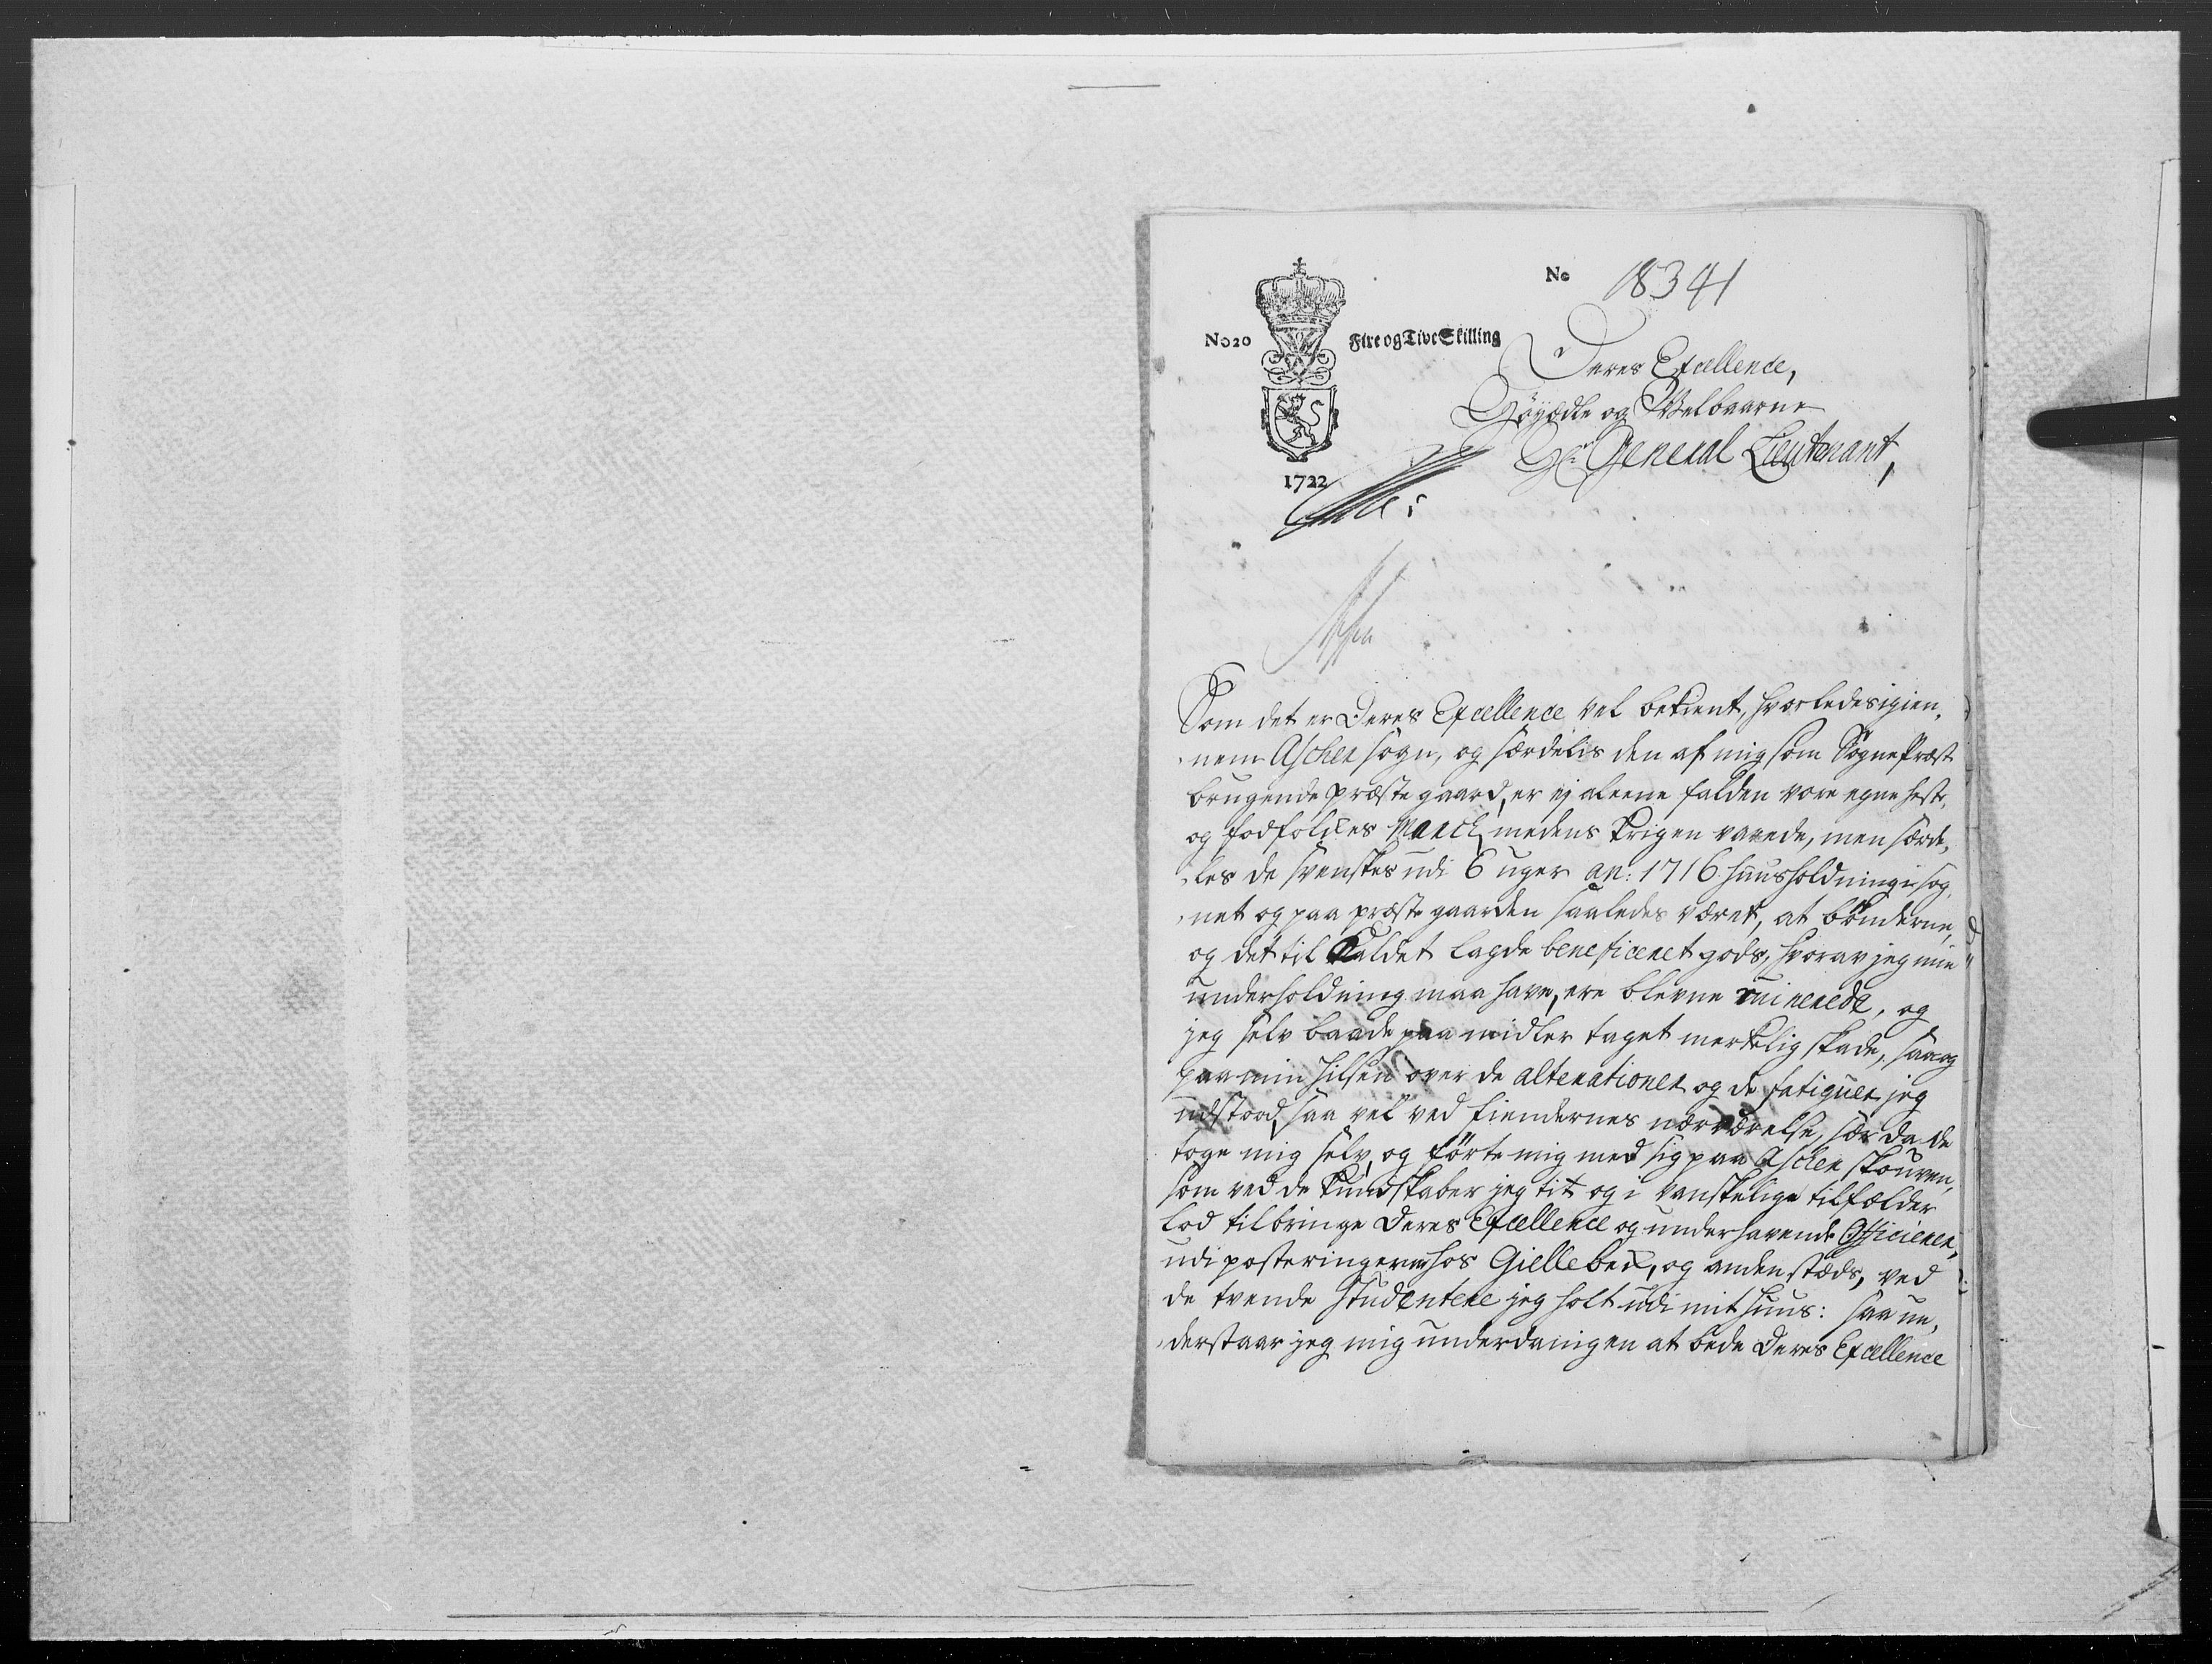 No 18341
No 20 Fire og Tive Skilling
1722
Deres Excellence,
Høyædle og Welbaarne
Hr. General Lieutenant,
Som det er Deres Excellence vel bekient, hvorledes igien,
nem Ascher sogn, og særdelis den af mig som Sogne Præst
brugende præste gaard, er ej aleene falden vore egne heste,
og fodfolckes March medens krigen varede, men særde,
les de svenskes udi 6 uger an: 1716 huusholdning i sog,
net og paa præste gaarden saaledes været, at bønderne,
og det til Kaldet lagde beneficeret gods, hvorav jeg min
underholdning maa have, ere blevne ruinerede, og
jeg selv baade paa midler taget merkelig skade, saa og
paa min hilsen over de alterationer og de fatiguer jeg
udstood, saa vel ved fiendernes nærværelse, sær da de
toge mig selv, og førte mig med sig paa Ascher skouven,
som ved de kundskaber jeg tit og i vanskelige tilfælder
lod tilbringe Deres Excellence og underhavende Officierer,
udi posteringerne hos Giellebeck, og anden stæds, ved
de tvende Studentere jeg holt udi mit huus: saa un,
derstaar jeg mig underdanigen at bede Deres Excellence